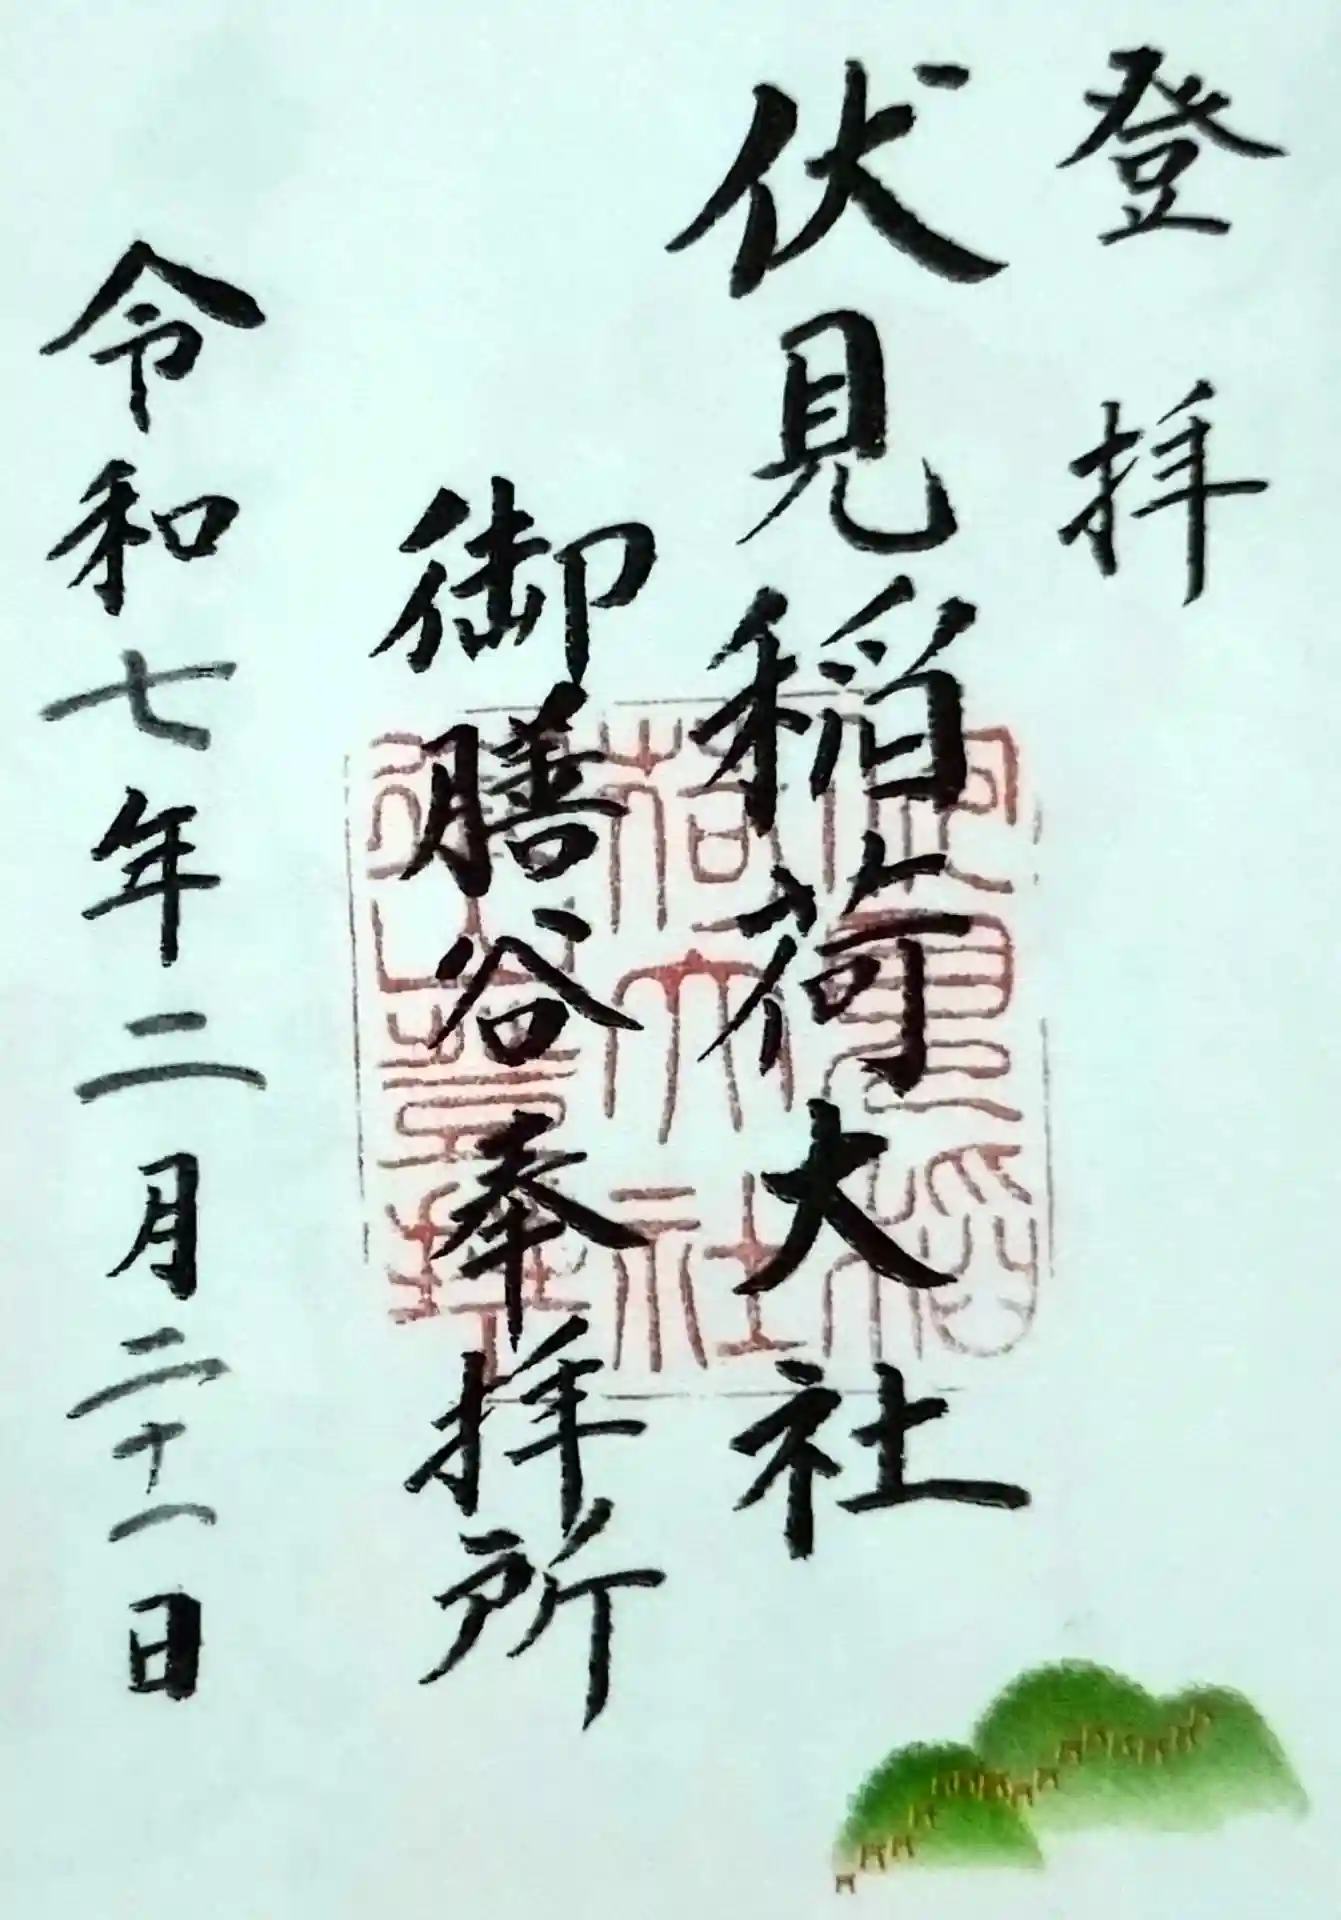 登拝
伏見稲荷大社
御膳谷奉拝所
令和七年二月二十一日